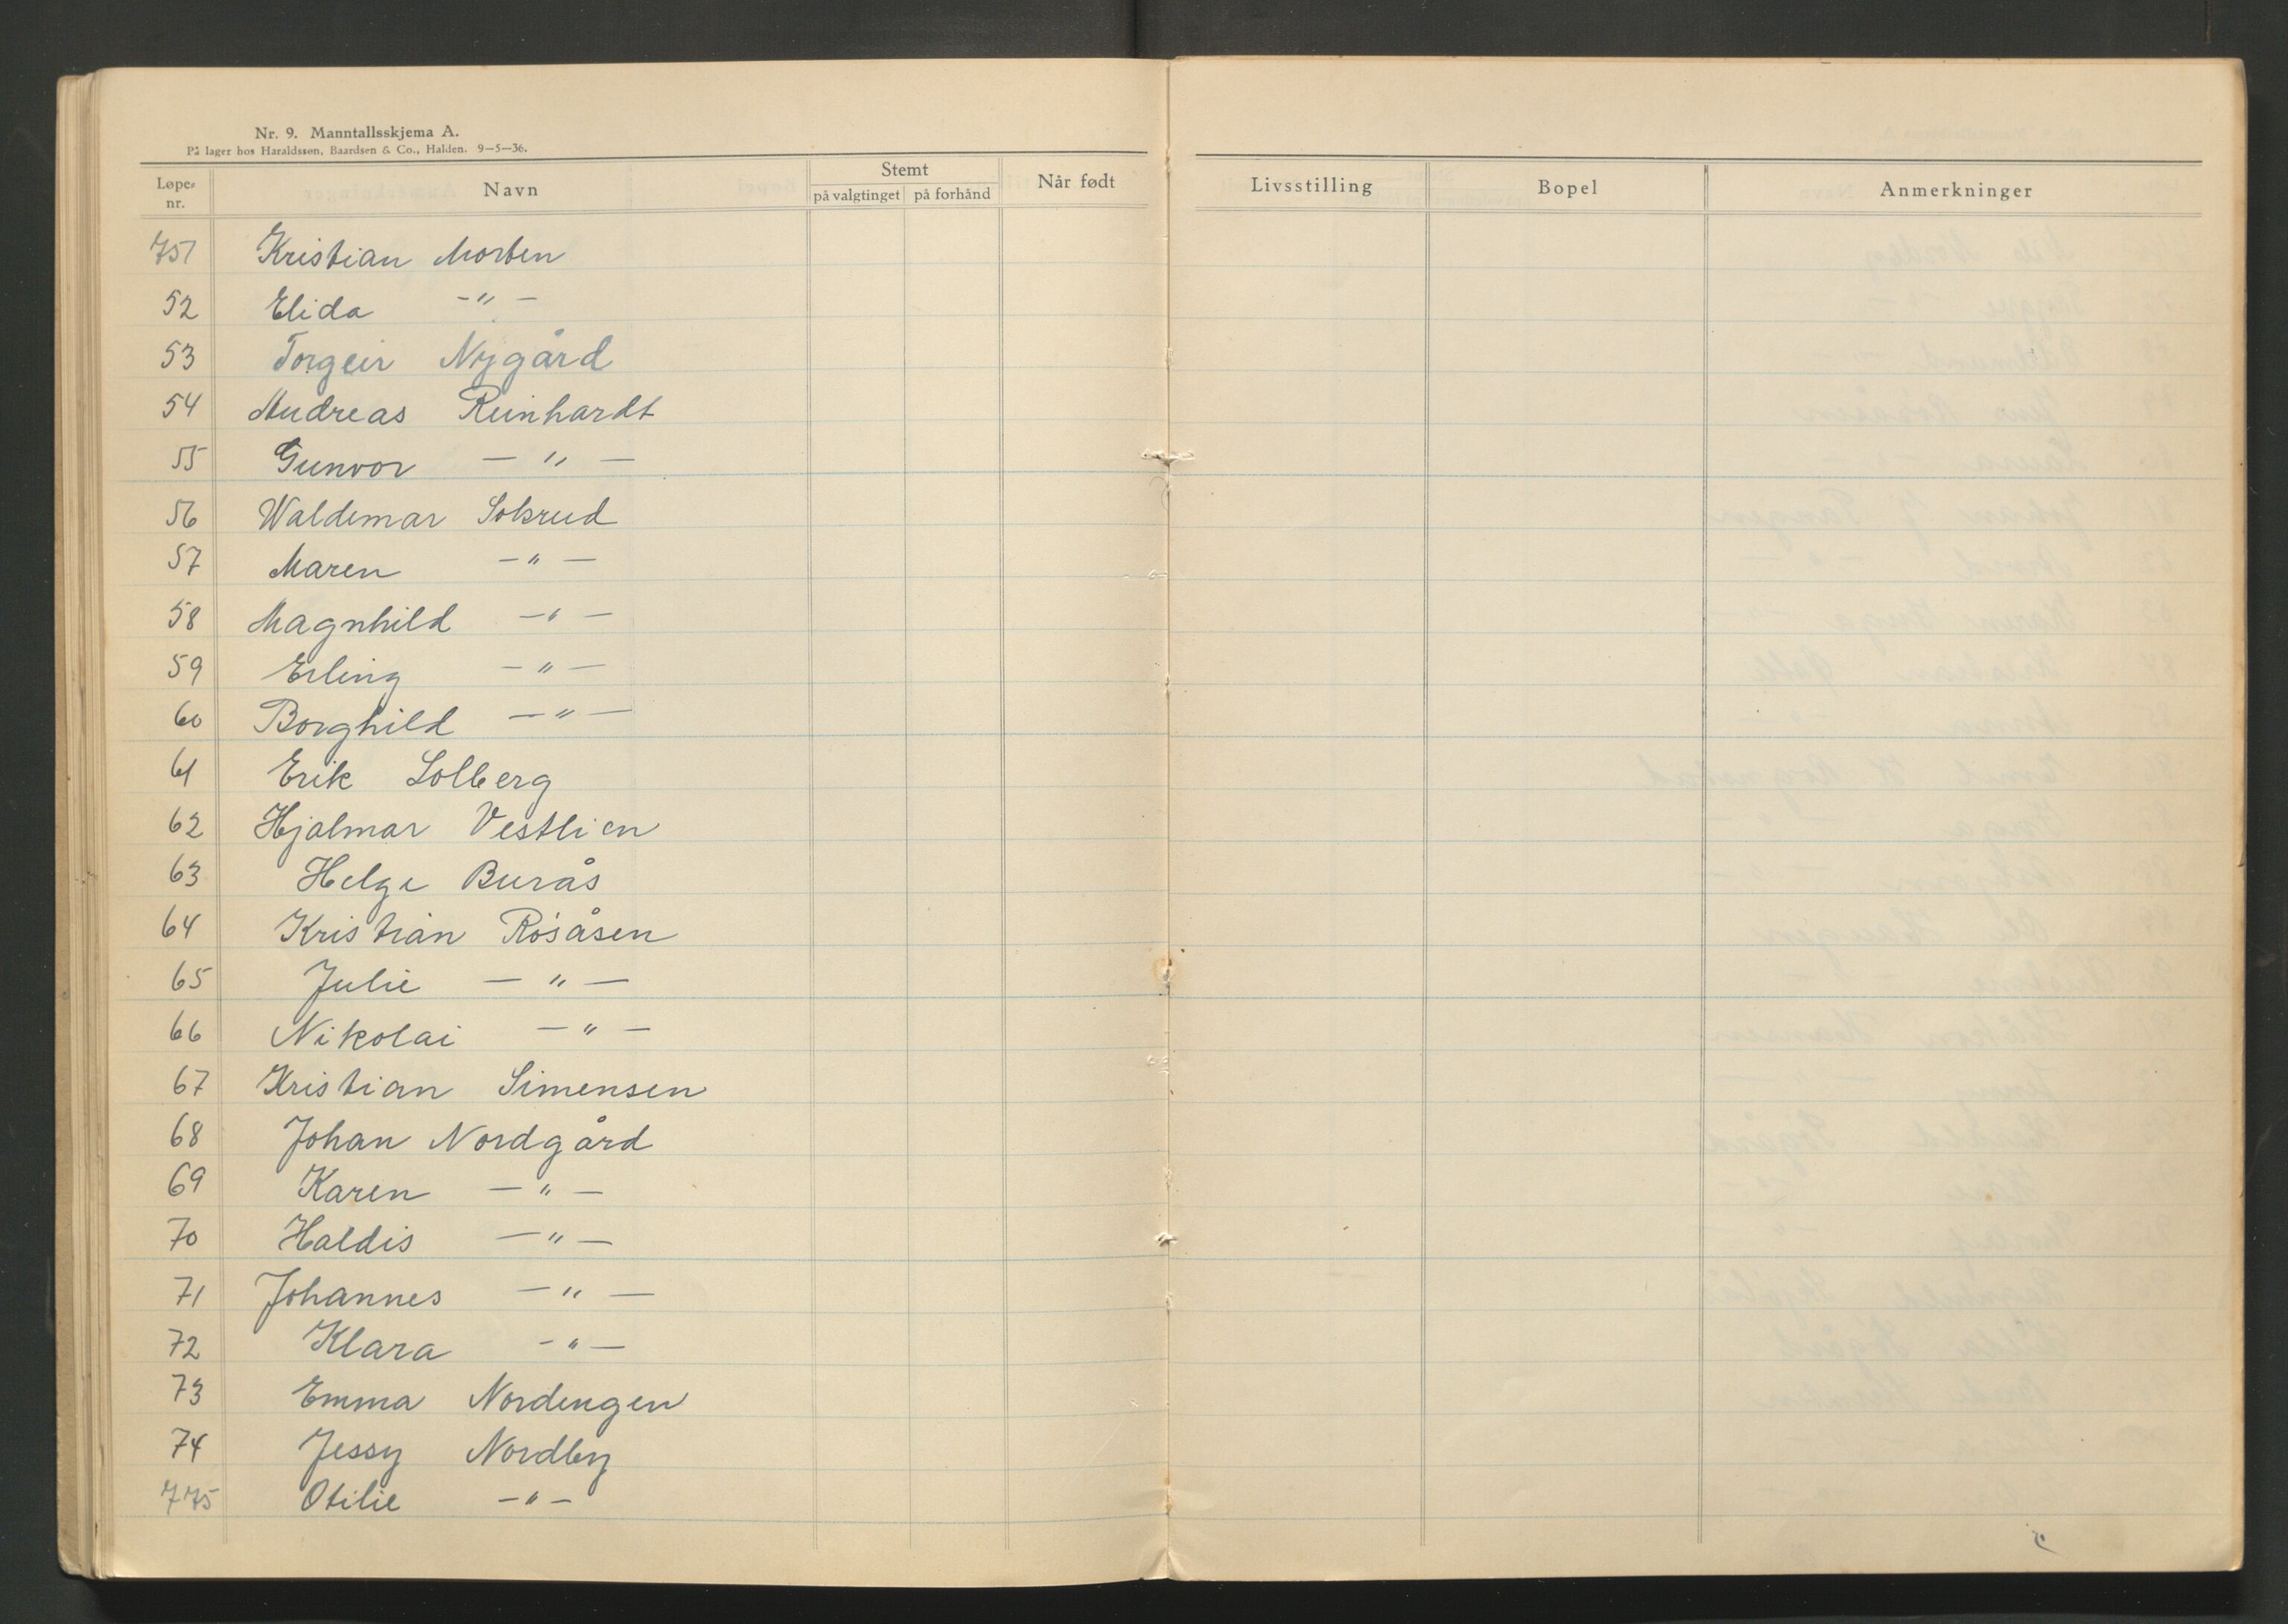 Nr. 9. Manntallsskjema A.
På lager hos Haraldssøn, Baardsen & Co., Halden. 9–5–36.
Løpe-nr. Navn Stemt på valgtinget på forhånd Når født Livsstilling Bopel Anmerkninger
751 Kristian Morten
52 Elida —"—
53 Torgeir Nygård
54 Andreas Reinhardt
55 Gunvor —"—
56 Waldemar
57 Maren —"—
58 Magnhild —"—
59 Erling —"—
60 Borghild —"—
61 Erik Solberg
62 Hjalmar Vestlien
63 Helge Burås
64 Kristian Rösåsen
65 Julie —"—
66 Nikolai —"—
67 Kristian Simensen
68 Johan Nordgård
69 Karen —"—
70 Haldis —"—
71 Johannes —"—
72 Klara —"—
73 Emma Nordengen
74 Jessy Nordby
775 Otilie —"—